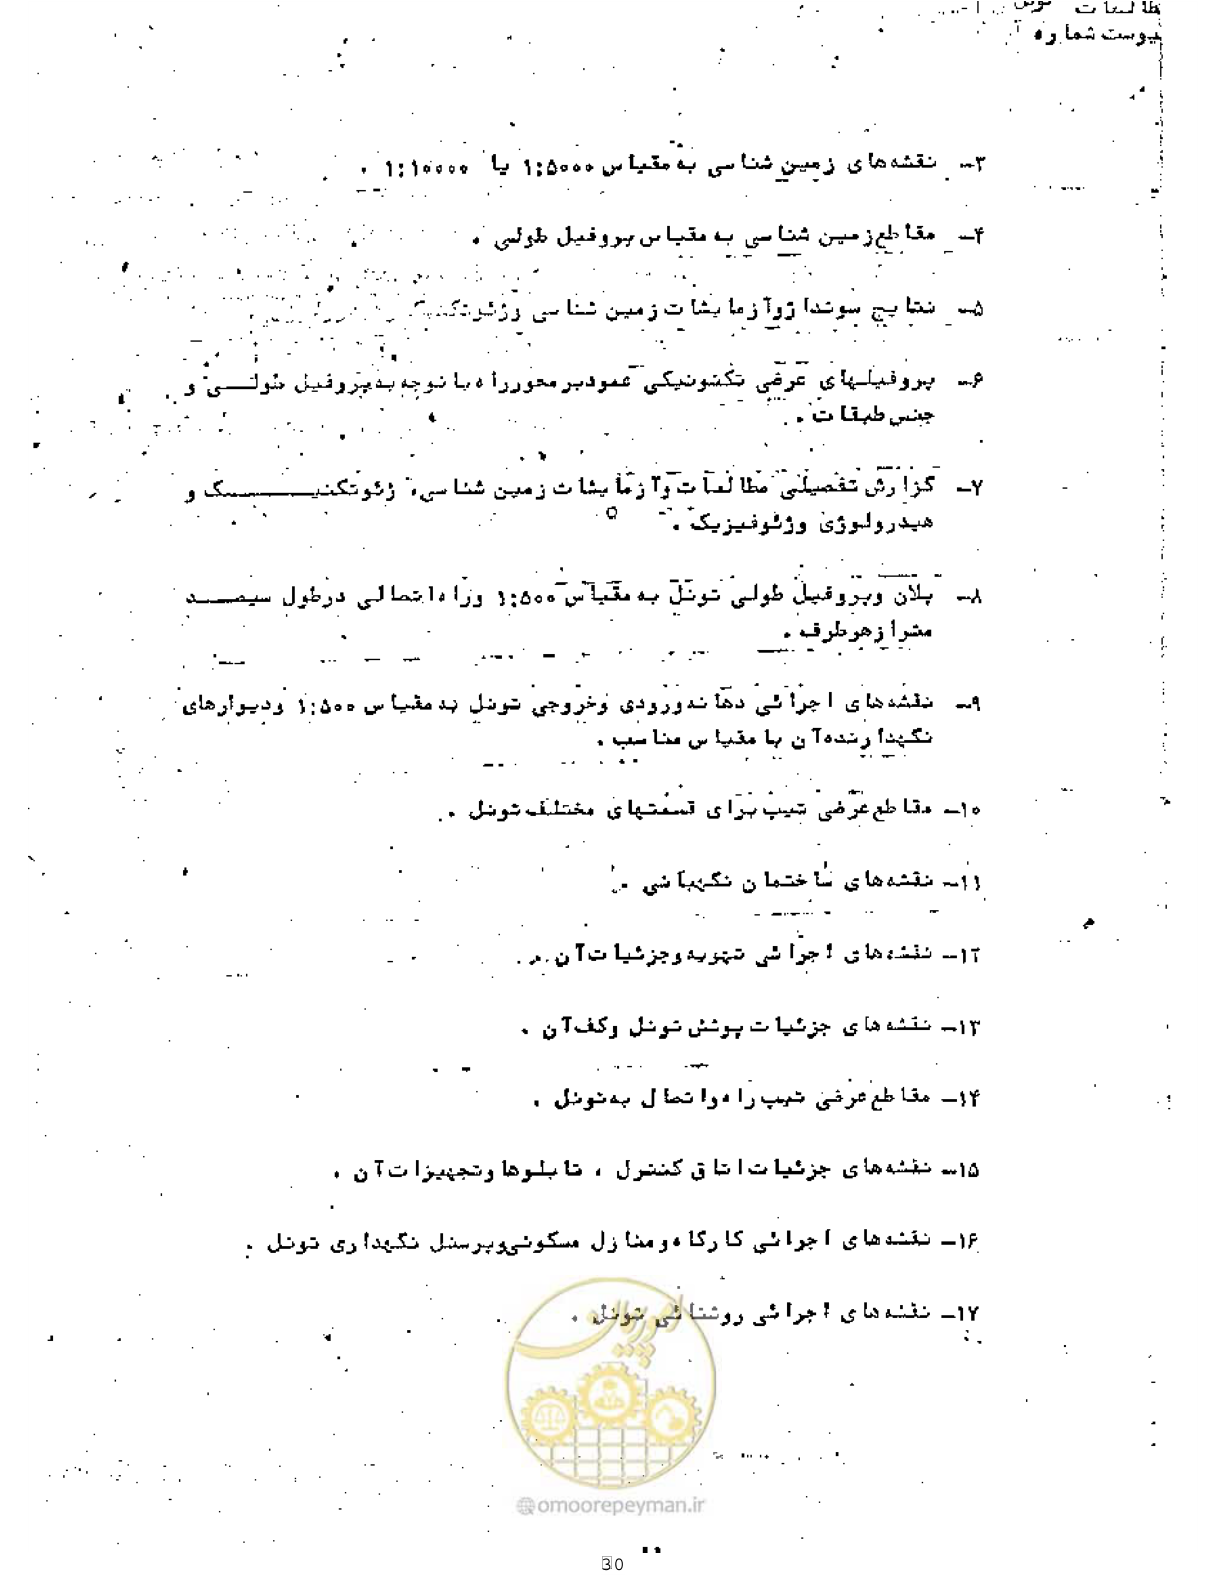 مطالعات تونل
پیوست شماره
۳- نقشه‌های زمین شناسی به مقیاس ۱:۵۰۰۰ یا ۱:۱۰۰۰۰ .
۴- مقاطع زمین شناسی به مقیاس پروفیل طولی .
۵- نتایج سونداژ و آزمایشات زمین شناسی و ژئوتکنیک
۶- پروفیلهای عرضی تکتونیکی عمود بر محور راه با توجه به پروفیل طولی و
جنس طبقات .
۷- گزارش تفصیلی مطالعات و آزمایشات زمین شناسی، ژئوتکنیک و
هیدرولوژی و ژئوفیزیک .
۸- پلان و پروفیل طولی تونل به مقیاس ۱:۵۰۰ و راه اتصالی در طول سیصد
متر از هر طرف .
۹- نقشه‌های اجرائی دهانه ورودی و خروجی تونل به مقیاس ۱:۵۰۰ و دیوارهای
نگهدارنده آن با مقیاس مناسب .
۱۰- مقاطع عرضی تیپ برای قسمتهای مختلف تونل .
۱۱- نقشه‌های ساختمان نگهبانی .
۱۲- نقشه‌های اجرائی تهویه و جزئیات آن .
۱۳- نقشه‌های جزئیات پوشش تونل و کف آن .
۱۴- مقاطع عرضی تیپ راه و اتصال به تونل .
۱۵- نقشه‌های جزئیات اتاق کنترل ، تابلوها و تجهیزات آن .
۱۶- نقشه‌های اجرائی کارگاه و منازل مسکونی و پرسنل نگهداری تونل .
۱۷- نقشه‌های اجرائی روشنائی تونل .
امور پیمان
@omoorepeyman.ir
30